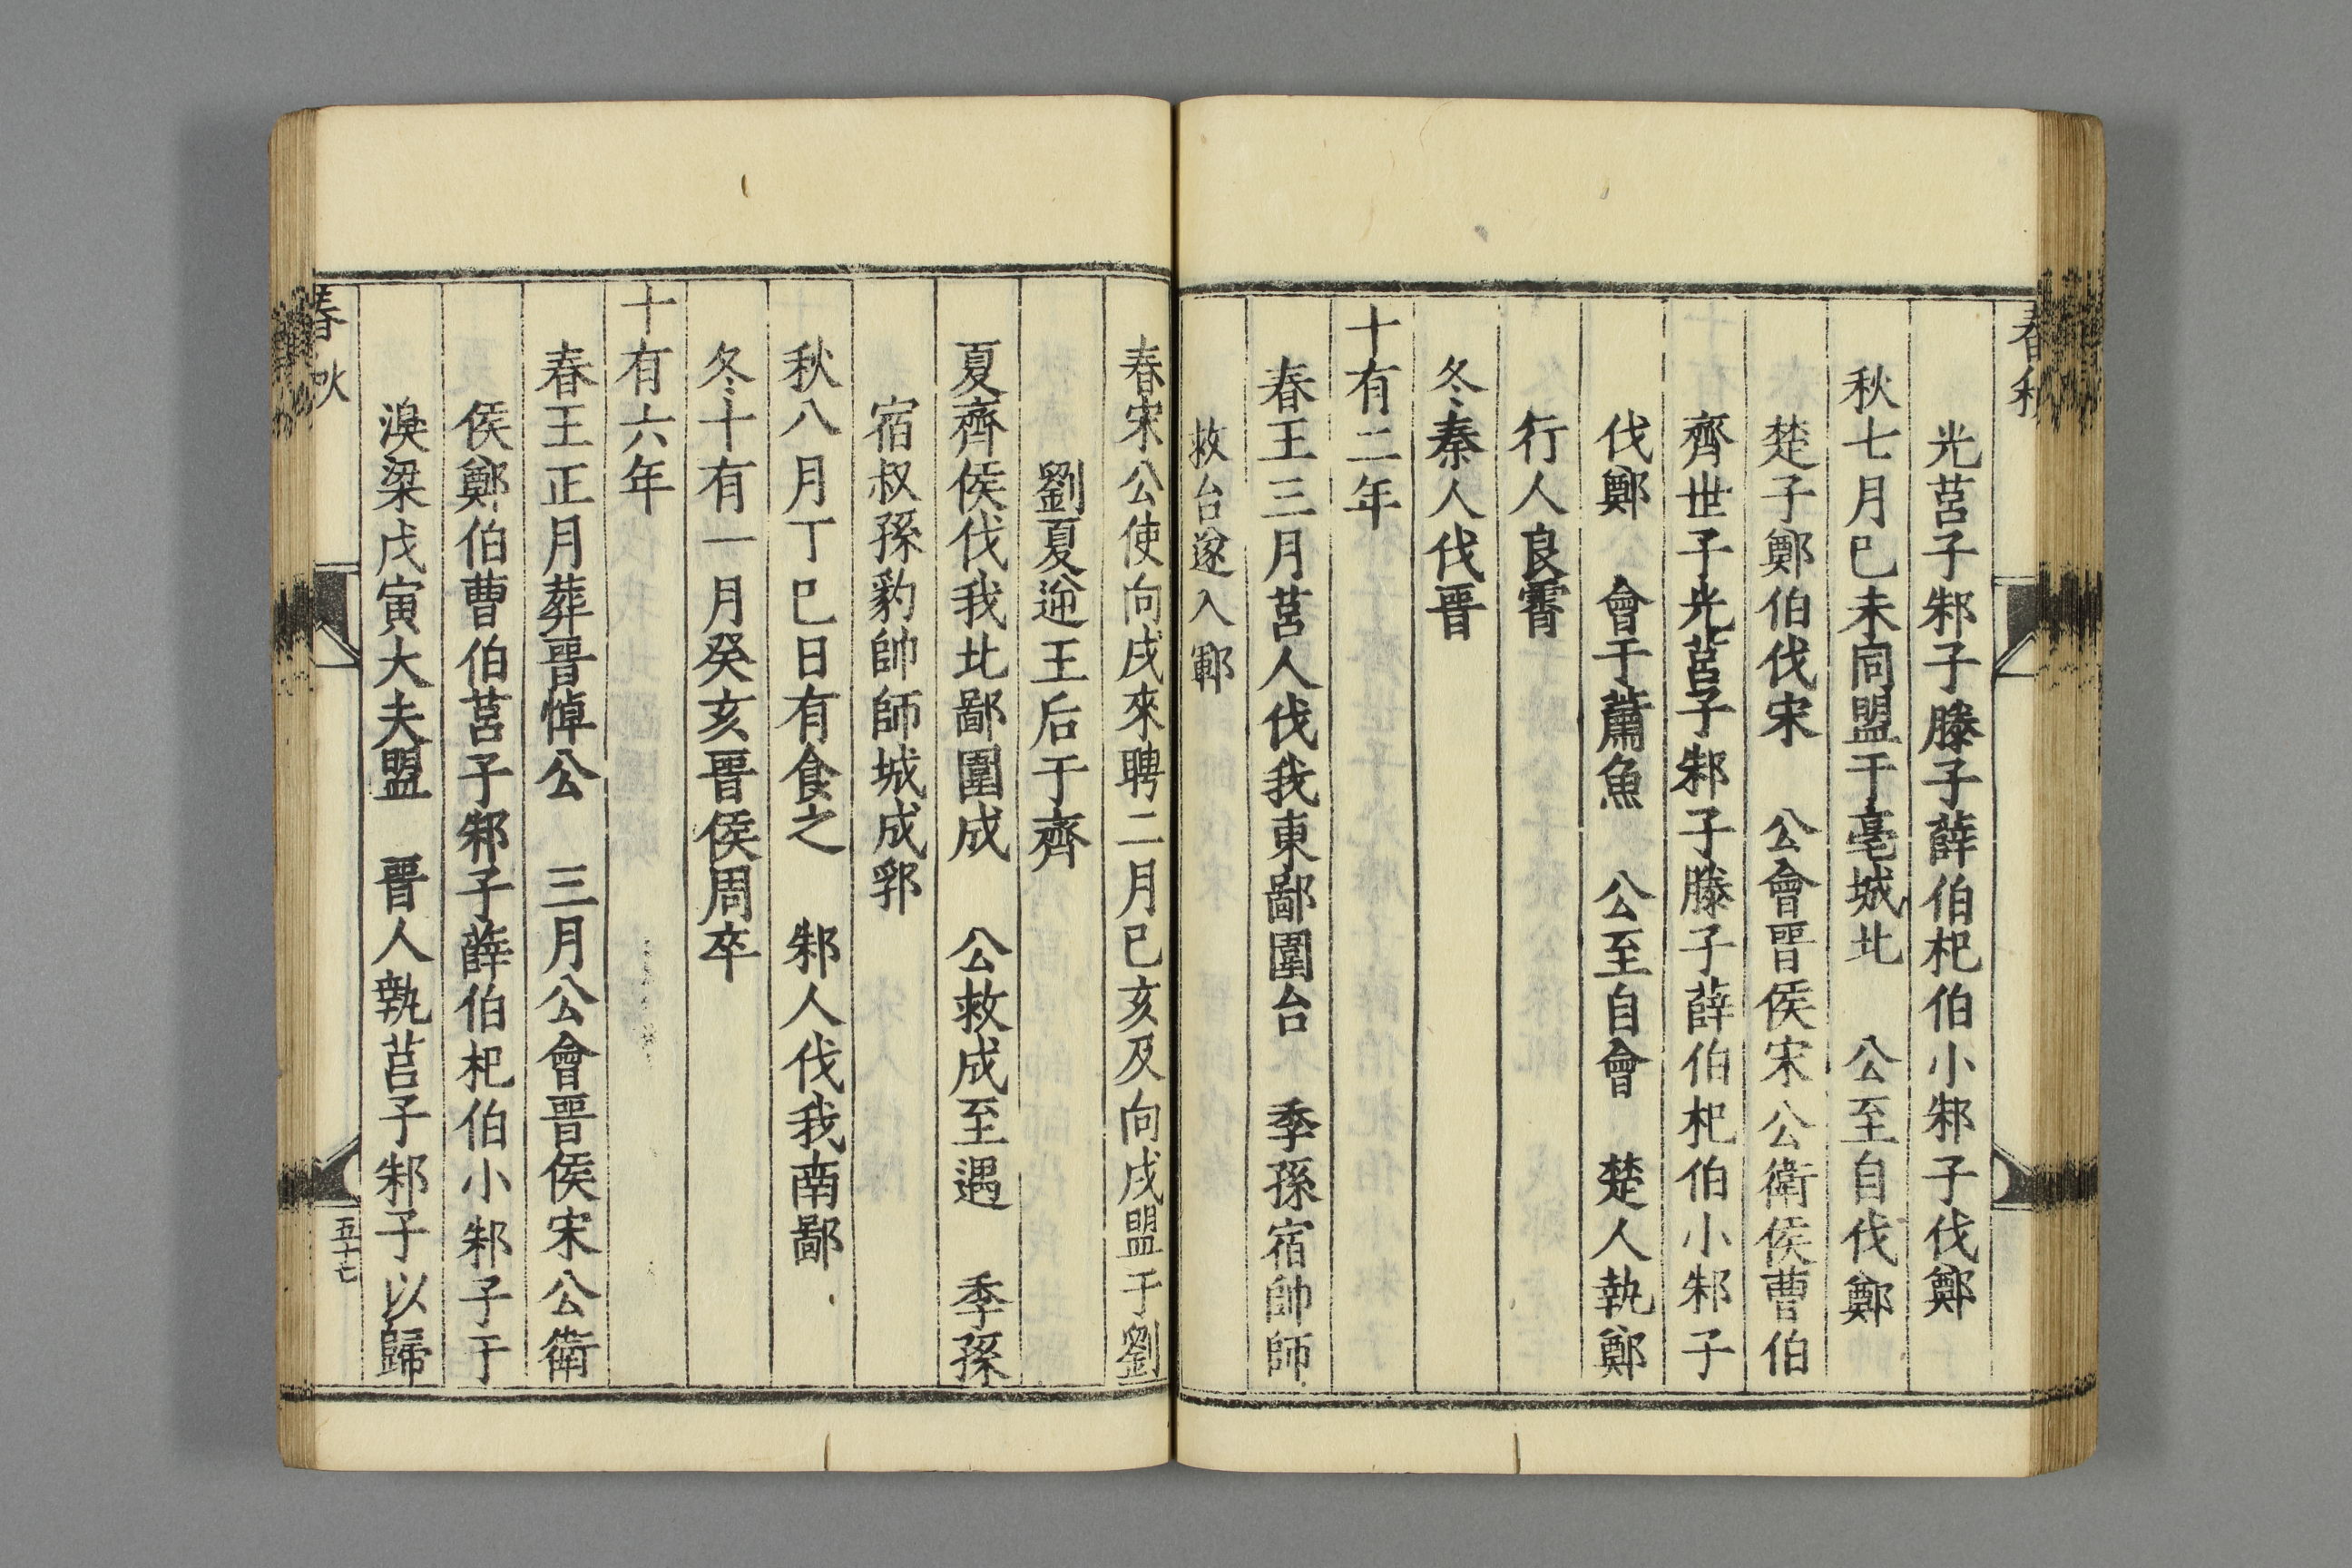 光莒子邾子滕子薛伯杞伯小邾子伐鄭
秋七月巳未同盟于亳城北 公至自伐鄭
楚子鄭伯伐宋 公會晋侯宋公衛侯曹伯
齊世子光莒子邾子滕子薛伯杞伯小邾子
伐鄭 會于蕭魚 公至自會 楚人執鄭
行人良霄
冬秦人伐晋
十有二年
春王三月莒人伐我東鄙圍台 季孫宿帥師
救台遂入鄆
春宋公使向戌來聘二月巳亥及向戌盟于劉
劉夏逆王后于齊
夏齊侯伐我北鄙圍成 公救成至遇 季孫
宿叔孫豹帥師城成郛
秋八月丁巳日有食之 邾人伐我南鄙
冬十有一月癸亥晋侯周卒
十有六年
春王正月葬晋悼公 三月公會晋侯宋公衛
侯鄭伯曹伯莒子邾子薛伯杞伯小邾子于
溴梁戊寅大夫盟 晋人執莒子邾子以歸
春秋
五十七